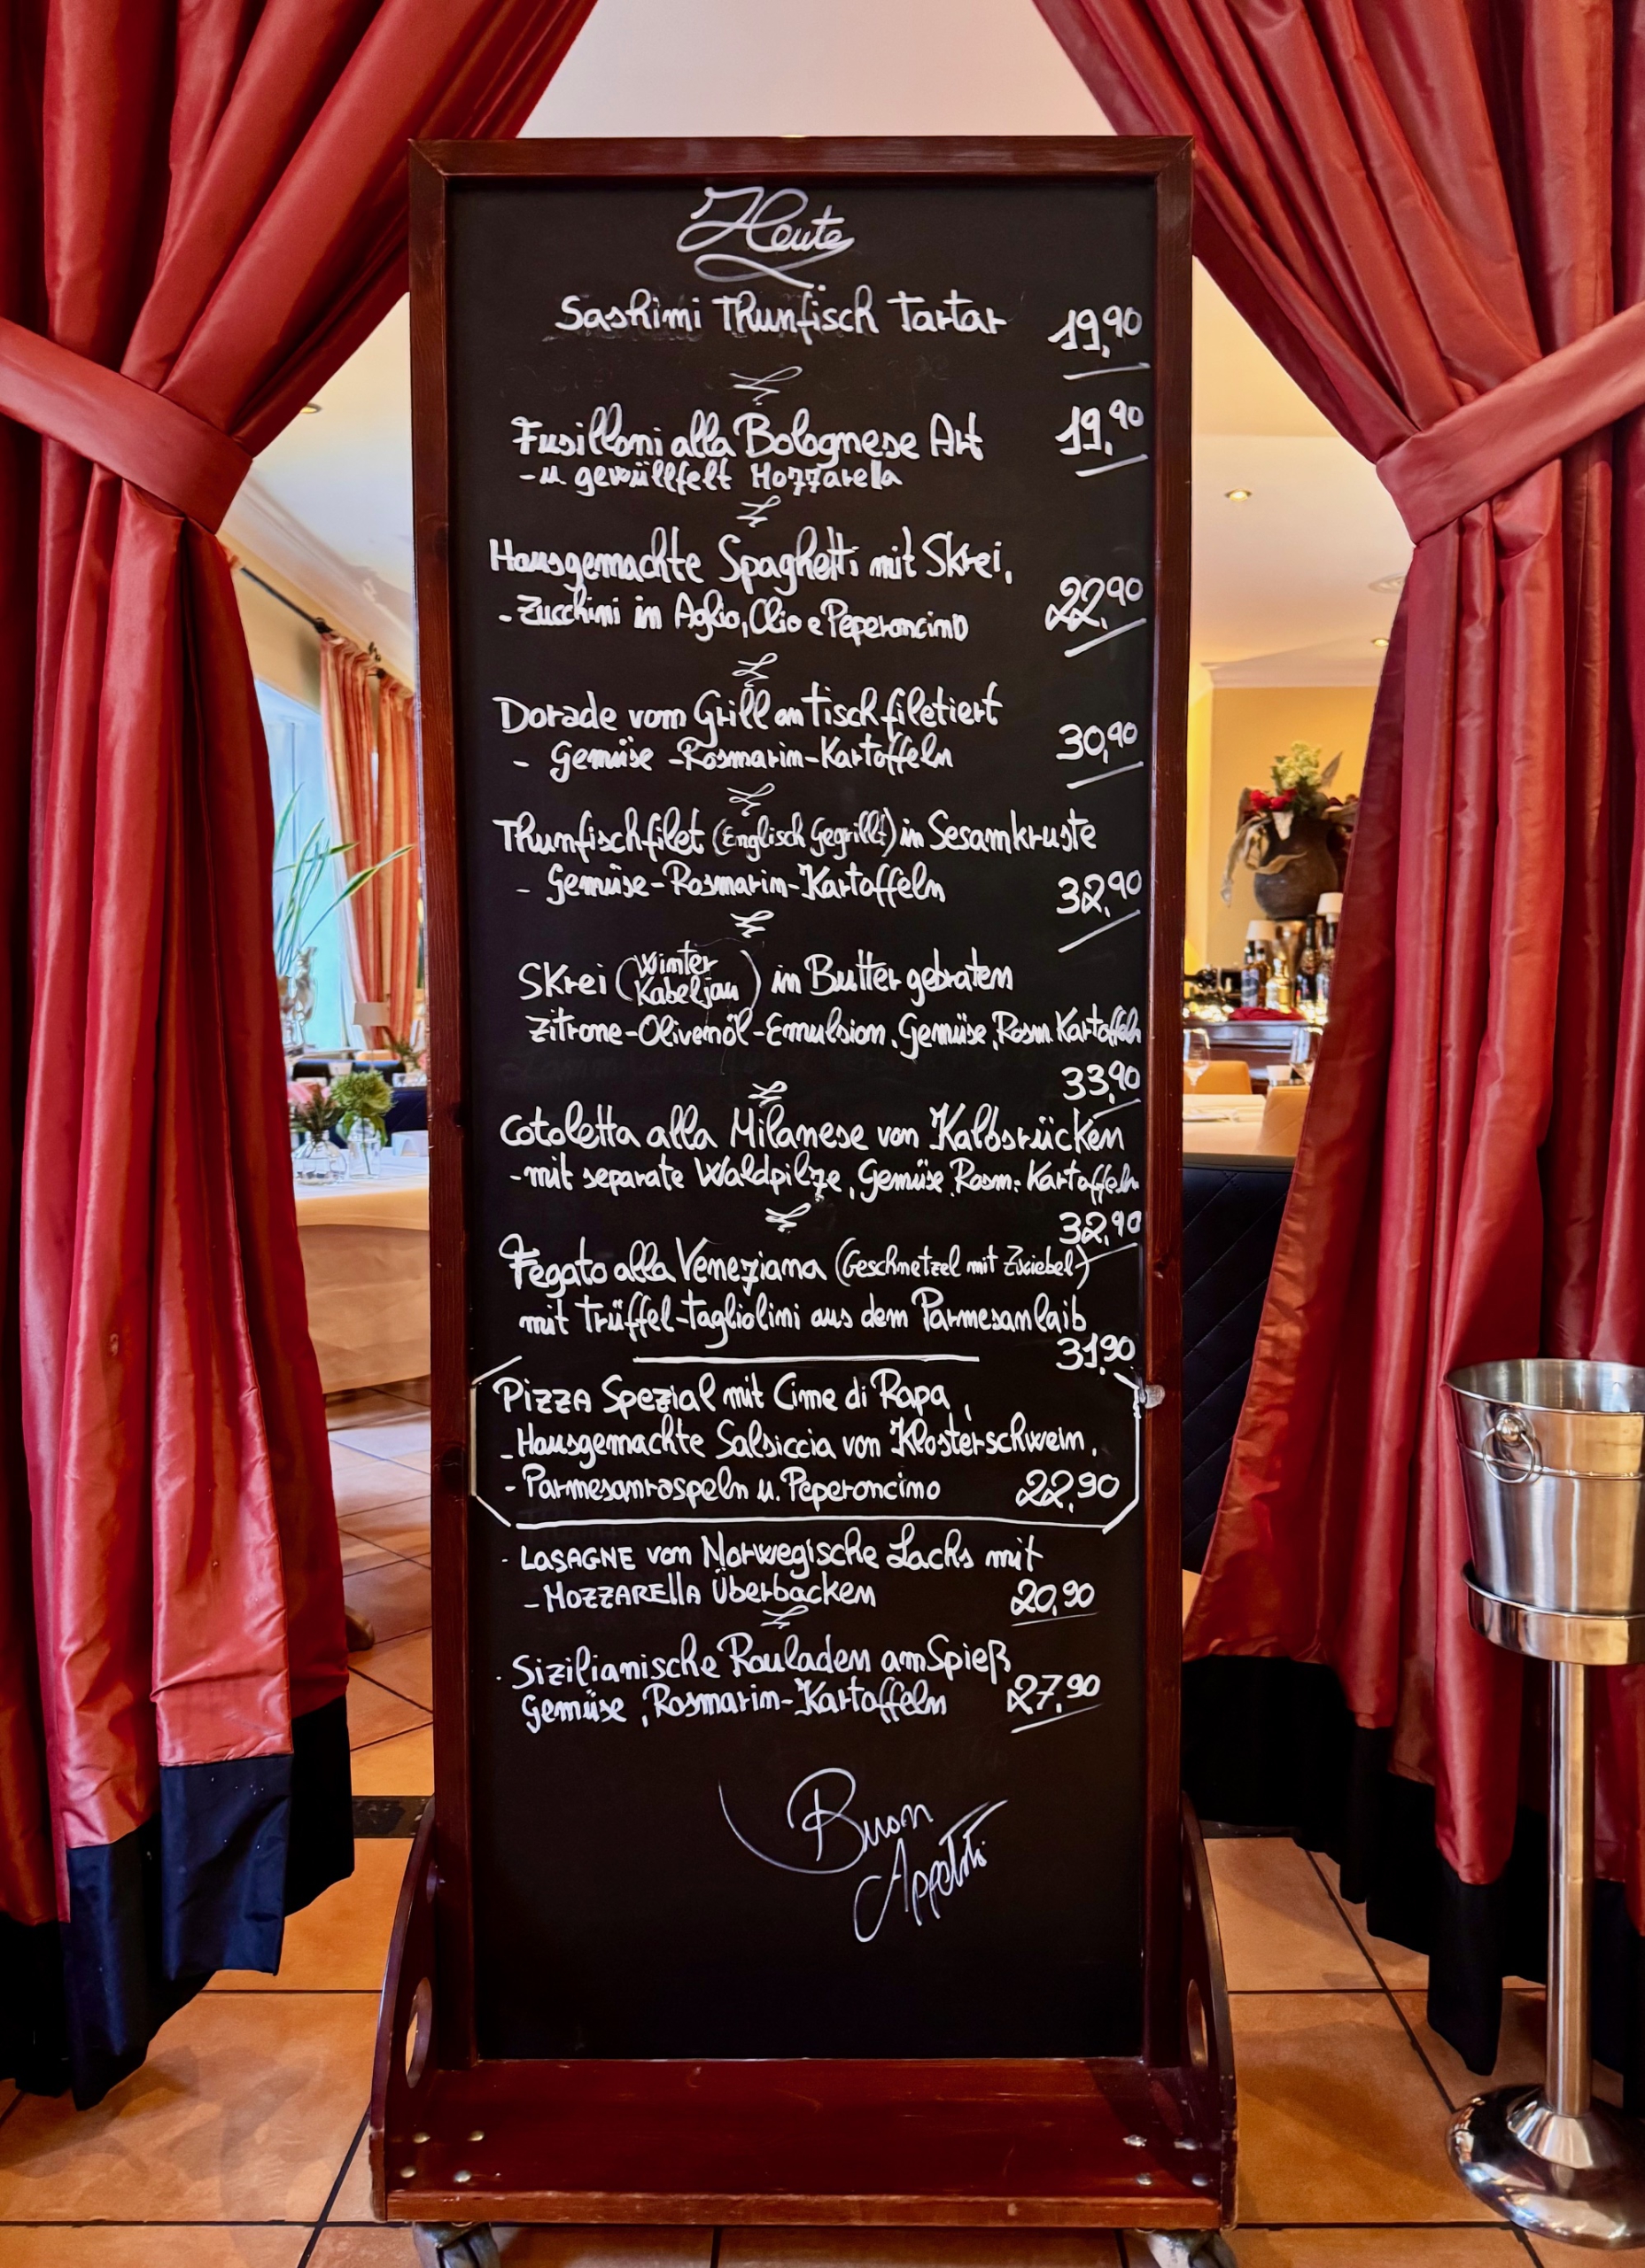 Heute
Sashimi Thunfisch Tartar 19,90
Fusilloni alla Bolognese Art 19,90
- u. gewüllfelt Mozzarella
Hausgemachte Spaghetti mit Skrei,
- Zucchini in Aglio, Olio e Peperoncino 22,90
Dorade vom Grill am Tisch filetiert
- Gemüse - Rosmarin-Kartoffeln 30,90
Thunfischfilet (Englisch Gegrillt) in Sesamkruste
- Gemüse - Rosmarin-Kartoffeln 32,90
Skrei (Winter Kabeljau) in Butter gebraten
Zitrone-Olivenöl-Emulsion, Gemüse, Rosm. Kartoffeln
33,90
Cotoletta alla Milanese von Kalbsrücken
- mit separate Waldpilze, Gemüse, Rosm. Kartoffeln
32,90
Fegato alla Veneziana (Geschnetzel mit Zwiebel)
mit Trüffel-Tagliolini aus dem Parmesanlaib
31,90
Pizza Spezial mit Cime di Rapa,
- Hausgemachte Salsiccia von Klosterschwein,
- Parmesanraspeln u. Peperoncino 22,90
· LASAGNE von Norwegische Lachs mit
- MOZZARELLA Überbacken 20,90
· Sizilianische Rouladen am Spieß
Gemüse, Rosmarin-Kartoffeln 27,90
Buon
Appetito